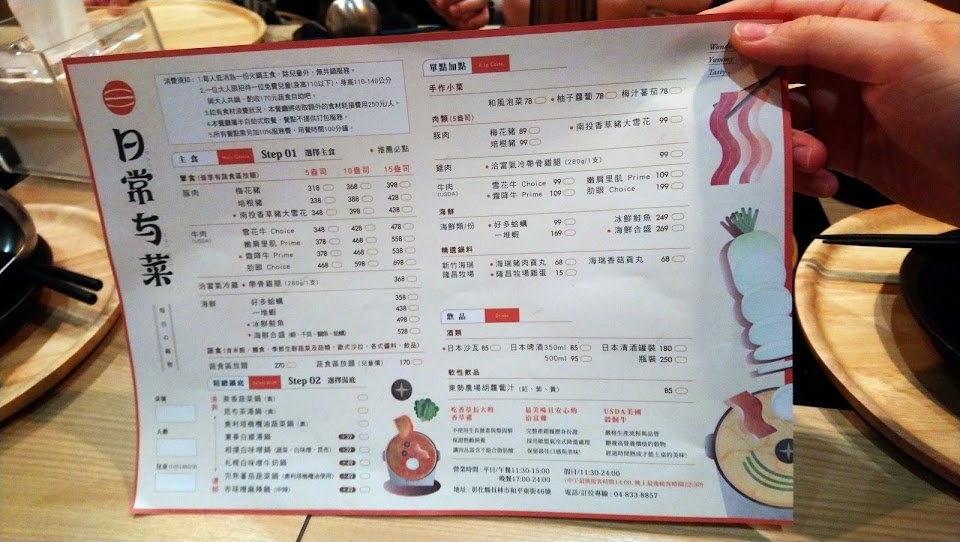 日常ち菜
消費須知：1.每人低消為一份火鍋主食，除兒童外，無共鍋服務。
2.一位大人限招待一位免費兒童(身高110以下)，身高110-140公分
與大人共鍋，酌收170元蔬食自助吧。
3.如有食材浪費狀況，本餐廳將收取額外的食材耗損費用250元/人。
4.本餐廳屬半自助式取餐，餐點不提供打包服務。
5.所有餐點需另加10%服務費，用餐時間100分鐘。
主食 Main Course Step 01 選擇主食 •推薦必點
葷食(皆享有蔬食區放題) 5盎司 10盎司 15盎司
豚肉 梅花豬 318 368 398
培根豬 338 388 428
•南投香草豬大雪花 348 398 438
牛肉(USDA) 雪花牛 Choice 348 428 478
嫩肩里肌 Prime 378 468 538
•霜降牛 Prime 378 468 558
肋眼 Choice 468 598 698
洽富氣冷雞 •帶骨雞腿 (280g/1支) 368
海鮮 好多蛤蠣 358
一堆蝦 438
•冰鮮鮭魚 498
•海鮮合盛 528
蔬食區放題 270 蔬食區放題(兒童價) 170
Step 02 選擇湯底
桌號
人數
兒童
昆布菜湯鍋(素)
單點加點 A La Carte
手作小菜
和風泡菜 78 •柚子蘿蔔 78 梅汁蕃茄 78
肉類(5盎司)
豚肉 梅花豬 89 •南投香草豬大雪花 99
培根豬 99
雞肉 •洽富氣冷帶骨雞腿 (280g/1支) 99
牛肉(USDA) 雪花牛 Choice 99 嫩肩里肌 Prime 109
•霜降牛 Prime 109 肋眼 Choice 199
海鮮
海鮮類/份 •好多蛤蠣 99 •冰鮮鮭魚 249
一堆蝦 169 •海鮮合盛 269
精選鍋料
新竹海瑞 •海瑞豬肉貢丸 68 海瑞香菇貢丸 68
隆昌牧場 •隆昌牧場雞蛋 15
飲品 Drinks
酒類
•日本沙瓦 85 •日本啤酒 350ml 85 日本清酒罐裝 180
500ml 95 瓶裝 250
軟性飲品
東勢農場胡蘿蔔汁 (紅、紫、黃) 85
吃香草長大的
香草豬
不使用生長激素與類固醇
保證熟齡飼養
最美味且安心的
洽富雞
完整產銷履歷身份證
採用歐盟氣冷式降溫處理
USDA美國
穀飼牛
嚴格生產流程與品管
營業時間：平日/午餐11:30-15:00
晚餐17:00-24:00
假日/11:30-24:00
地址：彰化縣員林市和平東街46號
電話/訂位專線：04-833-8857
Yummy
Tasty